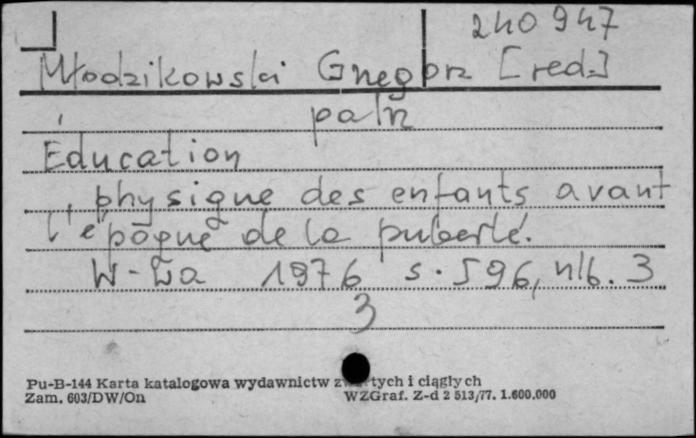 240947
Młodzikowski Grzegorz [red.]
patrz
Éducation
physique des enfants avant
l'époque de la puberté.
W-wa 1976 s. 596, nlb. 3
3
Pu-B-144 Karta katalogowa wydawnictw zwartych i ciągłych
Zam. 603/DW/On WZGraf. Z-d 2 513/77. 1.600.000